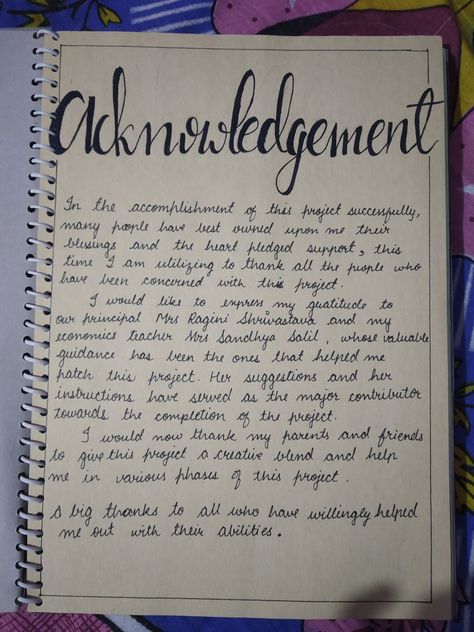 Acknowledgement
In the accomplishment of this project successfully,
many people have best owned upon me their
blessings and the heart pledged support, this
time I am utilizing to thank all the people who
have been concerned with this project.
I would like to express my gratitude to
our principal Mrs Ragini Shrivastava and my
economics teacher Mrs Sandhya Salil, whose valuable
guidance has been the ones that helped me
patch this project. Her suggestions and her
instructions have served as the major contributor
towards the completion of the project.
I would now thank my parents and friends
to give this project a creative blend and help
me in various phases of this project.
A big thanks to all who have willingly helped
me out with their abilities.